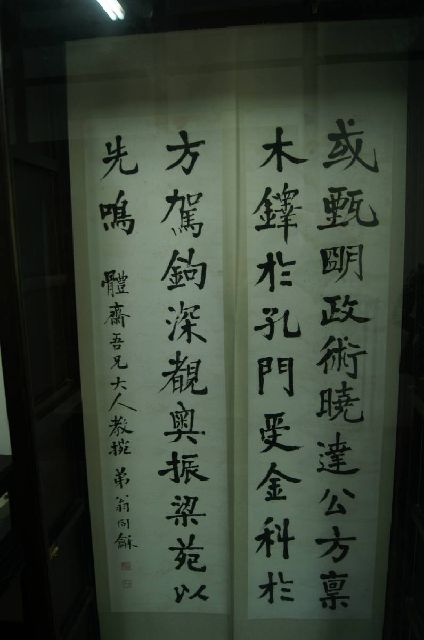 或甄明政術曉達公方稟
木鐸於孔門受金科於
方駕鉤深覩奧振梁苑以
先鳴
體齋吾兄大人教攬 弟翁同龢